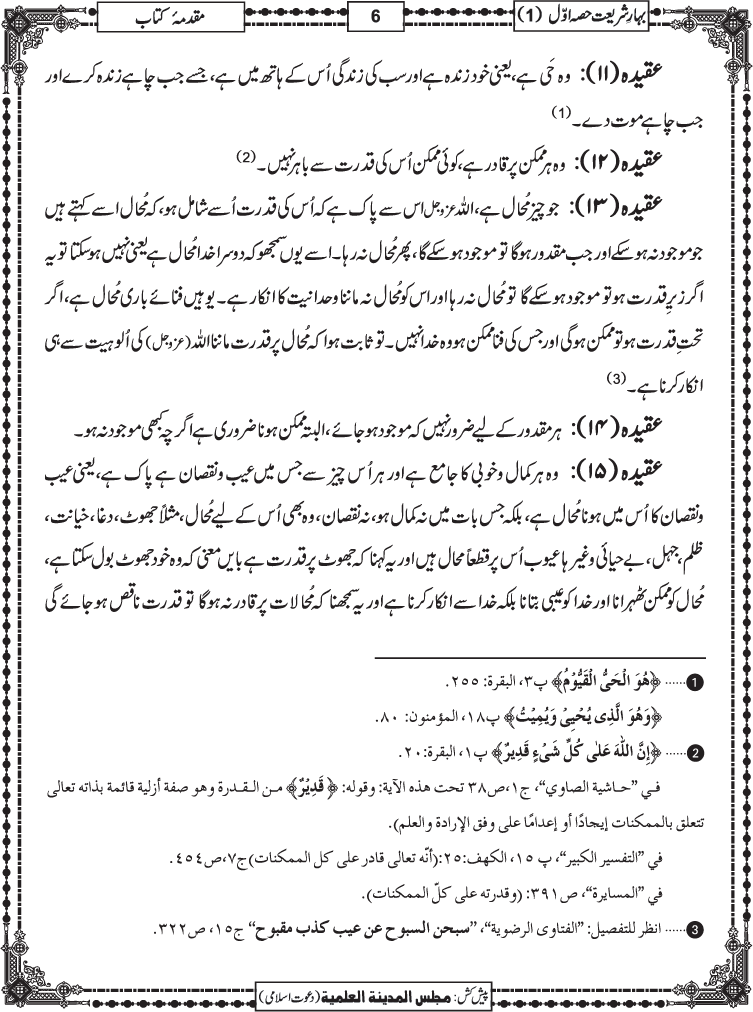 بہار شریعت حصہ اوّل (1)
6
مقدمۂ کتاب
عقیدہ (۱۱): وہ حَی ہے، یعنی خود زندہ ہے اور سب کی زندگی اُس کے ہاتھ میں ہے، جسے جب چاہے زندہ کرے اور
جب چاہے موت دے۔ (1)
عقیدہ (۱۲): وہ ہر ممکن پر قادر ہے، کوئی ممکن اُس کی قدرت سے باہر نہیں۔ (2)
عقیدہ (۱۳): جو چیز مُحال ہے، اللہ عزوجل اس سے پاک ہے کہ اُس کی قدرت اُسے شامل ہو، کہ مُحال اسے کہتے ہیں
جو موجود نہ ہوسکے اور جب مقدور ہوگا تو موجود ہوسکے گا، پھر مُحال نہ رہا۔ اسے یوں سمجھو کہ دوسرا خدا مُحال ہے یعنی نہیں ہوسکتا تو یہ
اگر زیرِ قدرت ہو تو موجود ہوسکے گا تو مُحال نہ رہا اور اس کو مُحال نہ ماننا وحدانیت کا انکار ہے۔ یوہیں فنائے باری مُحال ہے، اگر
تحتِ قدرت ہو تو ممکن ہوگی اور جس کی فنا ممکن ہو وہ خدا نہیں۔ تو ثابت ہوا کہ مُحال پر قدرت ماننا اللہ (عزوجل) کی اُلوہیت سے ہی
انکار کرنا ہے۔ (3)
عقیدہ (۱۴): ہر مقدور کے لیے ضرور نہیں کہ موجود ہوجائے، البتہ ممکن ہونا ضروری ہے اگرچہ کبھی موجود نہ ہو۔
عقیدہ (۱۵): وہ ہر کمال و خوبی کا جامع ہے اور ہر اُس چیز سے جس میں عیب و نقصان ہے پاک ہے، یعنی عیب
و نقصان کا اُس میں ہونا مُحال ہے، بلکہ جس بات میں نہ کمال ہو، نہ نقصان، وہ بھی اُس کے لیے مُحال، مثلاً جھوٹ، دغا، خیانت،
ظلم، جہل، بے حیائی وغیرہا عیوب اُس پر قطعاً محال ہیں اور یہ کہنا کہ جھوٹ پر قدرت ہے بایں معنی کہ وہ خود جھوٹ بول سکتا ہے،
مُحال کو ممکن ٹھہرانا اور خدا کو عیبی بتانا بلکہ خدا سے انکار کرنا ہے اور یہ سمجھنا کہ مُحالات پر قادر نہ ہوگا تو قدرت ناقص ہوجائے گی
1 ...... ﴿هُوَ الْحَيُّ الْقَيُّوْمُ﴾ پ۳، البقرة: ۲۵۵.
﴿وَهُوَ الَّذِى يُحْيِىْ وَيُمِيْتُ﴾ پ۱۸، المؤمنون: ۸۰.
2 ...... ﴿اِنَّ اللّٰهَ عَلٰى كُلِّ شَىْءٍ قَدِيْرٌ﴾ پ۱، البقرة:۲۰.
في ”حاشية الصاوي“، ج۱،ص۳۸ تحت هذه الآية: وقوله: ﴿قَدِيْرٌ﴾ من القدرة وهو صفة أزلية قائمة بذاته تعالى
تتعلق بالممكنات إيجادًا أو إعدامًا على وفق الإرادة والعلم).
في ”التفسير الكبير“، پ ۱۵، الكهف:۲۵:(أنّه تعالى قادر على كل الممكنات)ج۷،ص٤٥٤.
في ”المسايرة“، ص۳۹۱: (وقدرته على كلّ الممكنات).
3 ...... انظر للتفصيل: ”الفتاوى الرضوية“، ”سبحن السبوح عن عيب كذب مقبوح“ ج۱۵، ص۳۲۲.
پیش کش: مجلس المدينة العلمية (دعوت اسلامی)